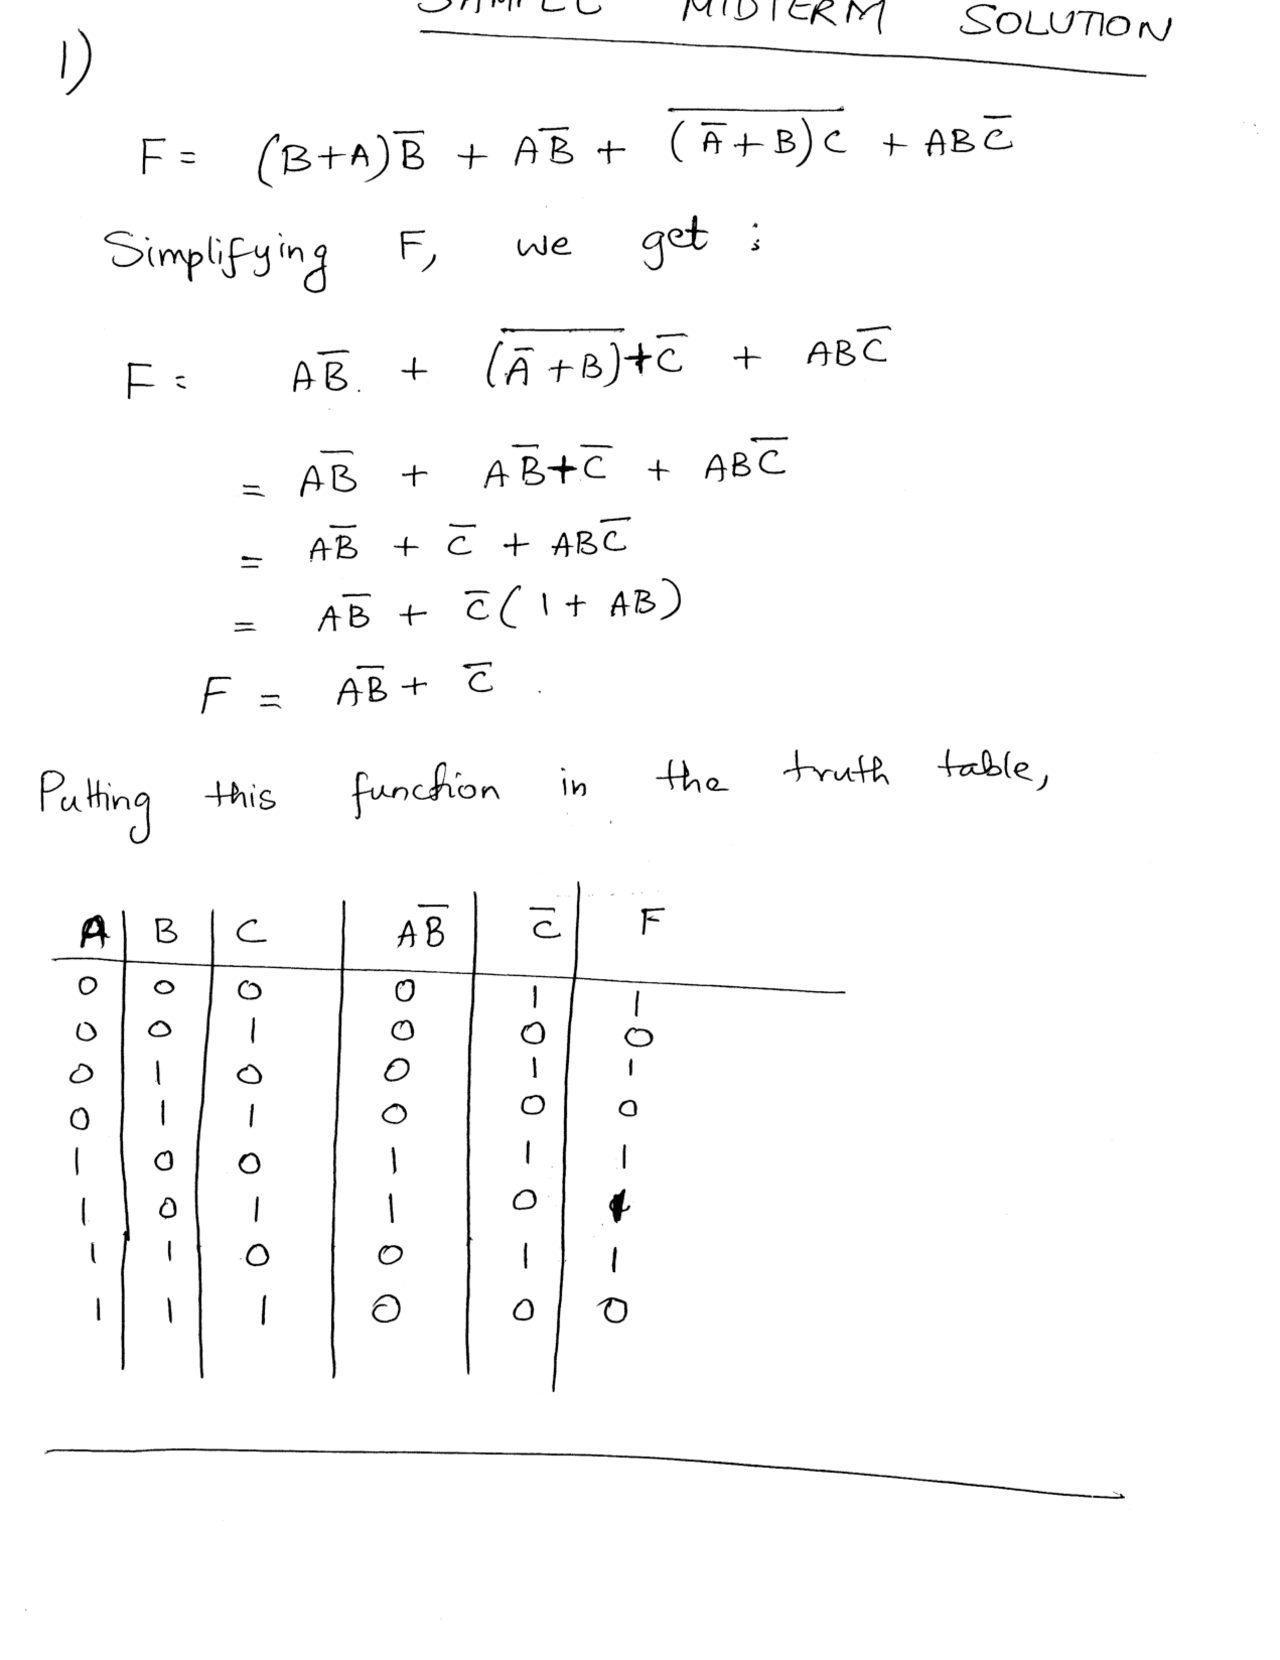 SAMPLE MIDTERM SOLUTION
1)
F = (B+A)B̅ + AB̅ + \overline{(A̅+B)C} + ABC̅
Simplifying F, we get :
F = AB̅ + \overline{(A̅+B)}+C̅ + ABC̅
= AB̅ + AB̅+C̅ + ABC̅
= AB̅ + C̅ + ABC̅
= AB̅ + C̅(1+AB)
F = AB̅ + C̅ .
Putting this function in the truth table,
A B C AB̅ C̅ F
0 0 0 0 1 1
0 0 1 0 0 0
0 1 0 0 1 1
0 1 1 0 0 0
1 0 0 1 1 1
1 0 1 1 0 1
1 1 0 0 1 1
1 1 1 0 0 0